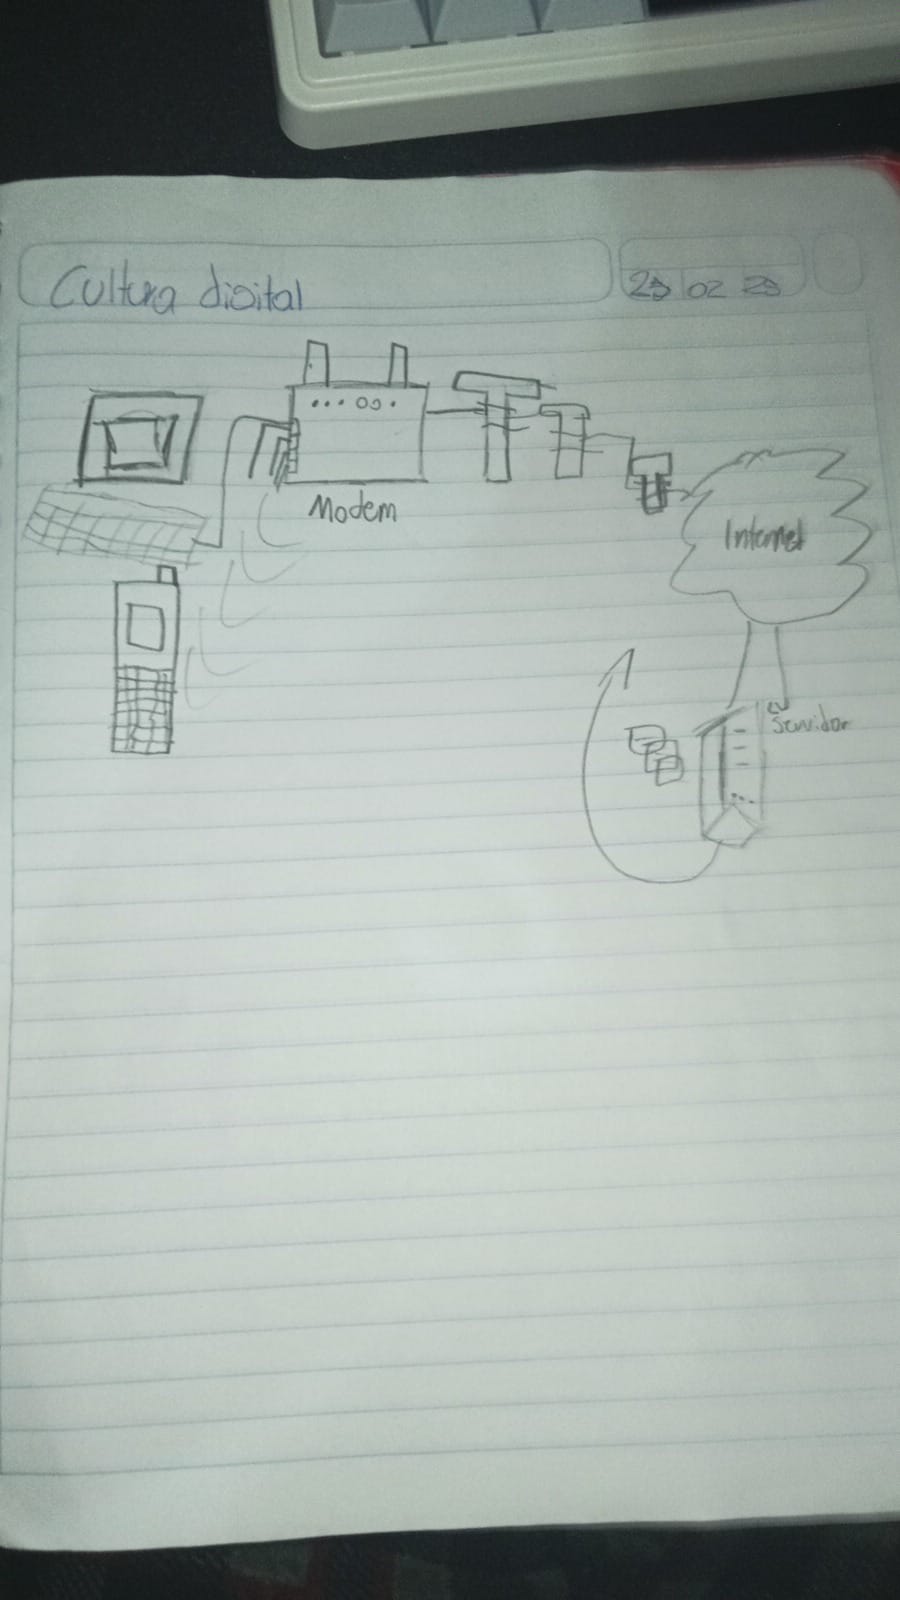 Cultura digital
Modem
Internet
Servidor